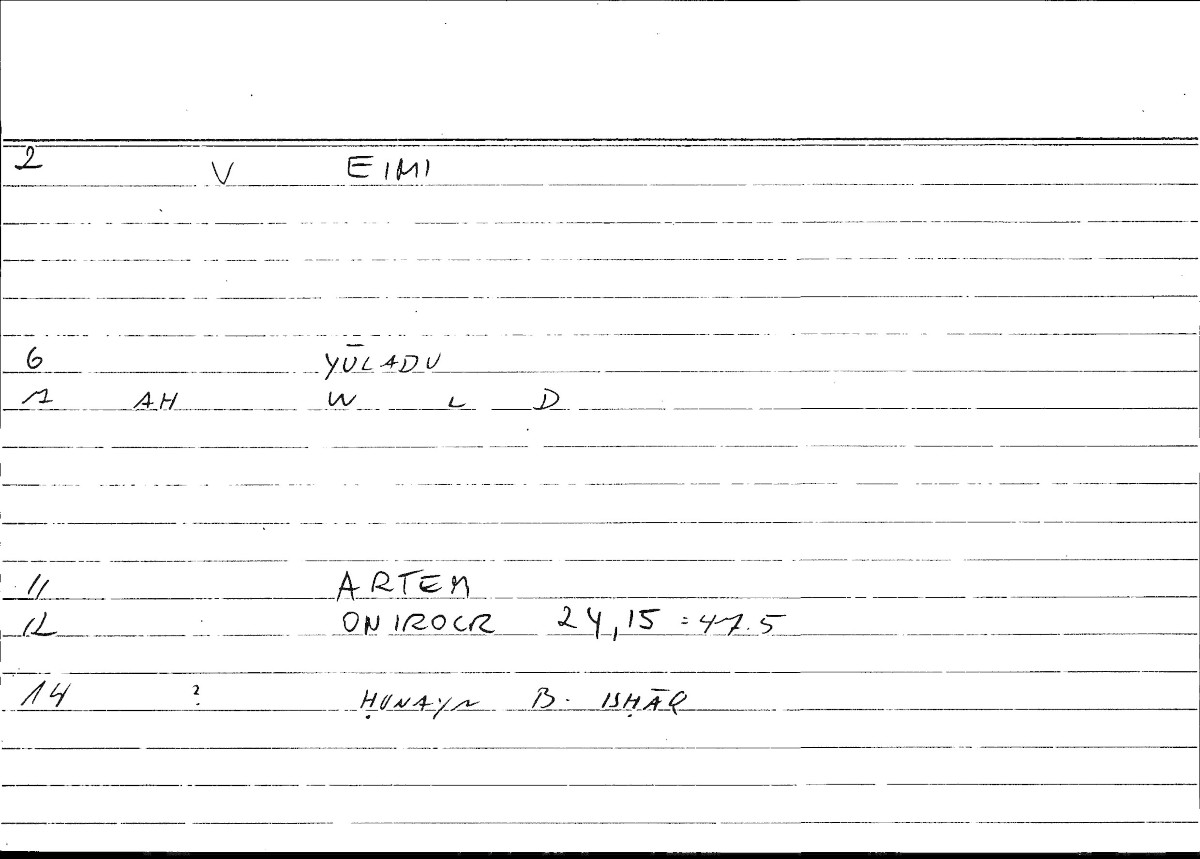 2 V EIMI
6 YŪLADU
7 AH W L D
11 ARTEM
12 ONIROCR 24,15 = 47.5
14 ? ḤUNAYN B. ISḤĀQ